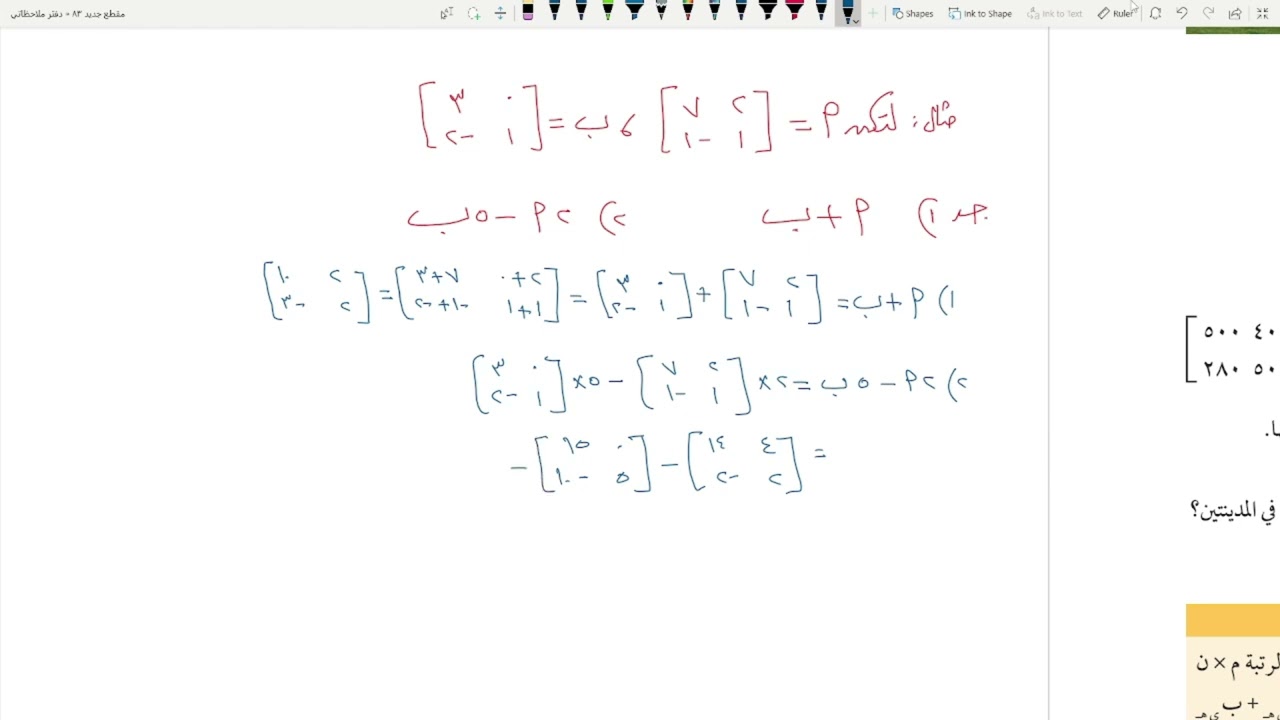 مقطع جديد ٨٣ • دفتر ملاحظاتي
Shapes Ink to Shape Ink to Text Ruler
مثال: لتكن م = [٢ ٧ ; ١ -١] ، ب = [٠ ٣ ; ١ -٢]
جد ١) م + ب ٢) ٢م - ٥ب
١) م + ب = [٢ ٧ ; ١ -١] + [٠ ٣ ; ١ -٢] = [٢+٠ ٧+٣ ; ١+١ -١+-٢] = [٢ ١٠ ; ٢ -٣]
٢) ٢م - ٥ب = ٢× [٢ ٧ ; ١ -١] - ٥× [٠ ٣ ; ١ -٢]
= [٤ ١٤ ; ٢ -٢] - [٠ ١٥ ; ٥ -١٠] -
٤٠ ٥٠٠
٥٠ ٢٨٠
ها.
في المدينتين؟
لرتبة م × ن
+ ب